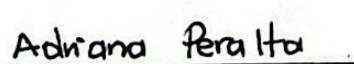 Adriana Peralta